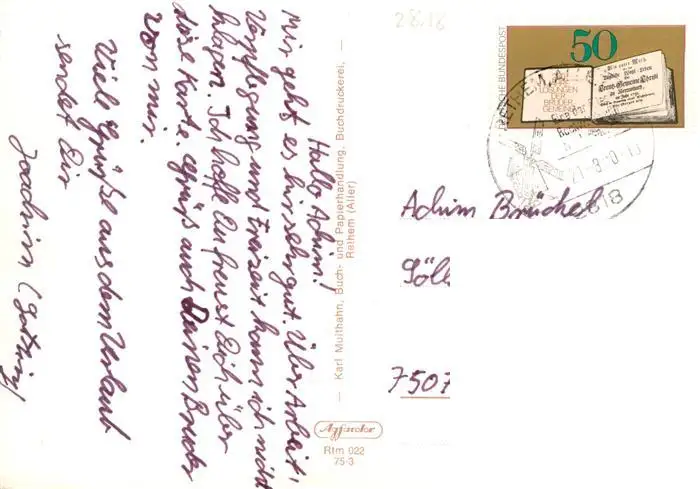 Hallo Achim!
Mir geht es hir sehr gut. Über Arbeit,
Verpflegung und Freizeit kann ich nicht
klagen. Ich hoffe Du freust Dich über
diese Karte. Grüß auch Deinen Bruder
von mir.
Viele Grüße aus dem Urlaub
sendet Dir
Joachim
— Karl Multhahn, Buch- und Papierhandlung, Buchdruckerei, —
Rethem (Aller)
Agfacolor
Rtm 022
75-3
28.18
DEUTSCHE BUNDESPOST
50
LOSUNGEN
DER
BRÜDER
GEMEINE
RETHEM, ALLER
21.-8.-0.-15
Achim Brüchel
Söll
7507